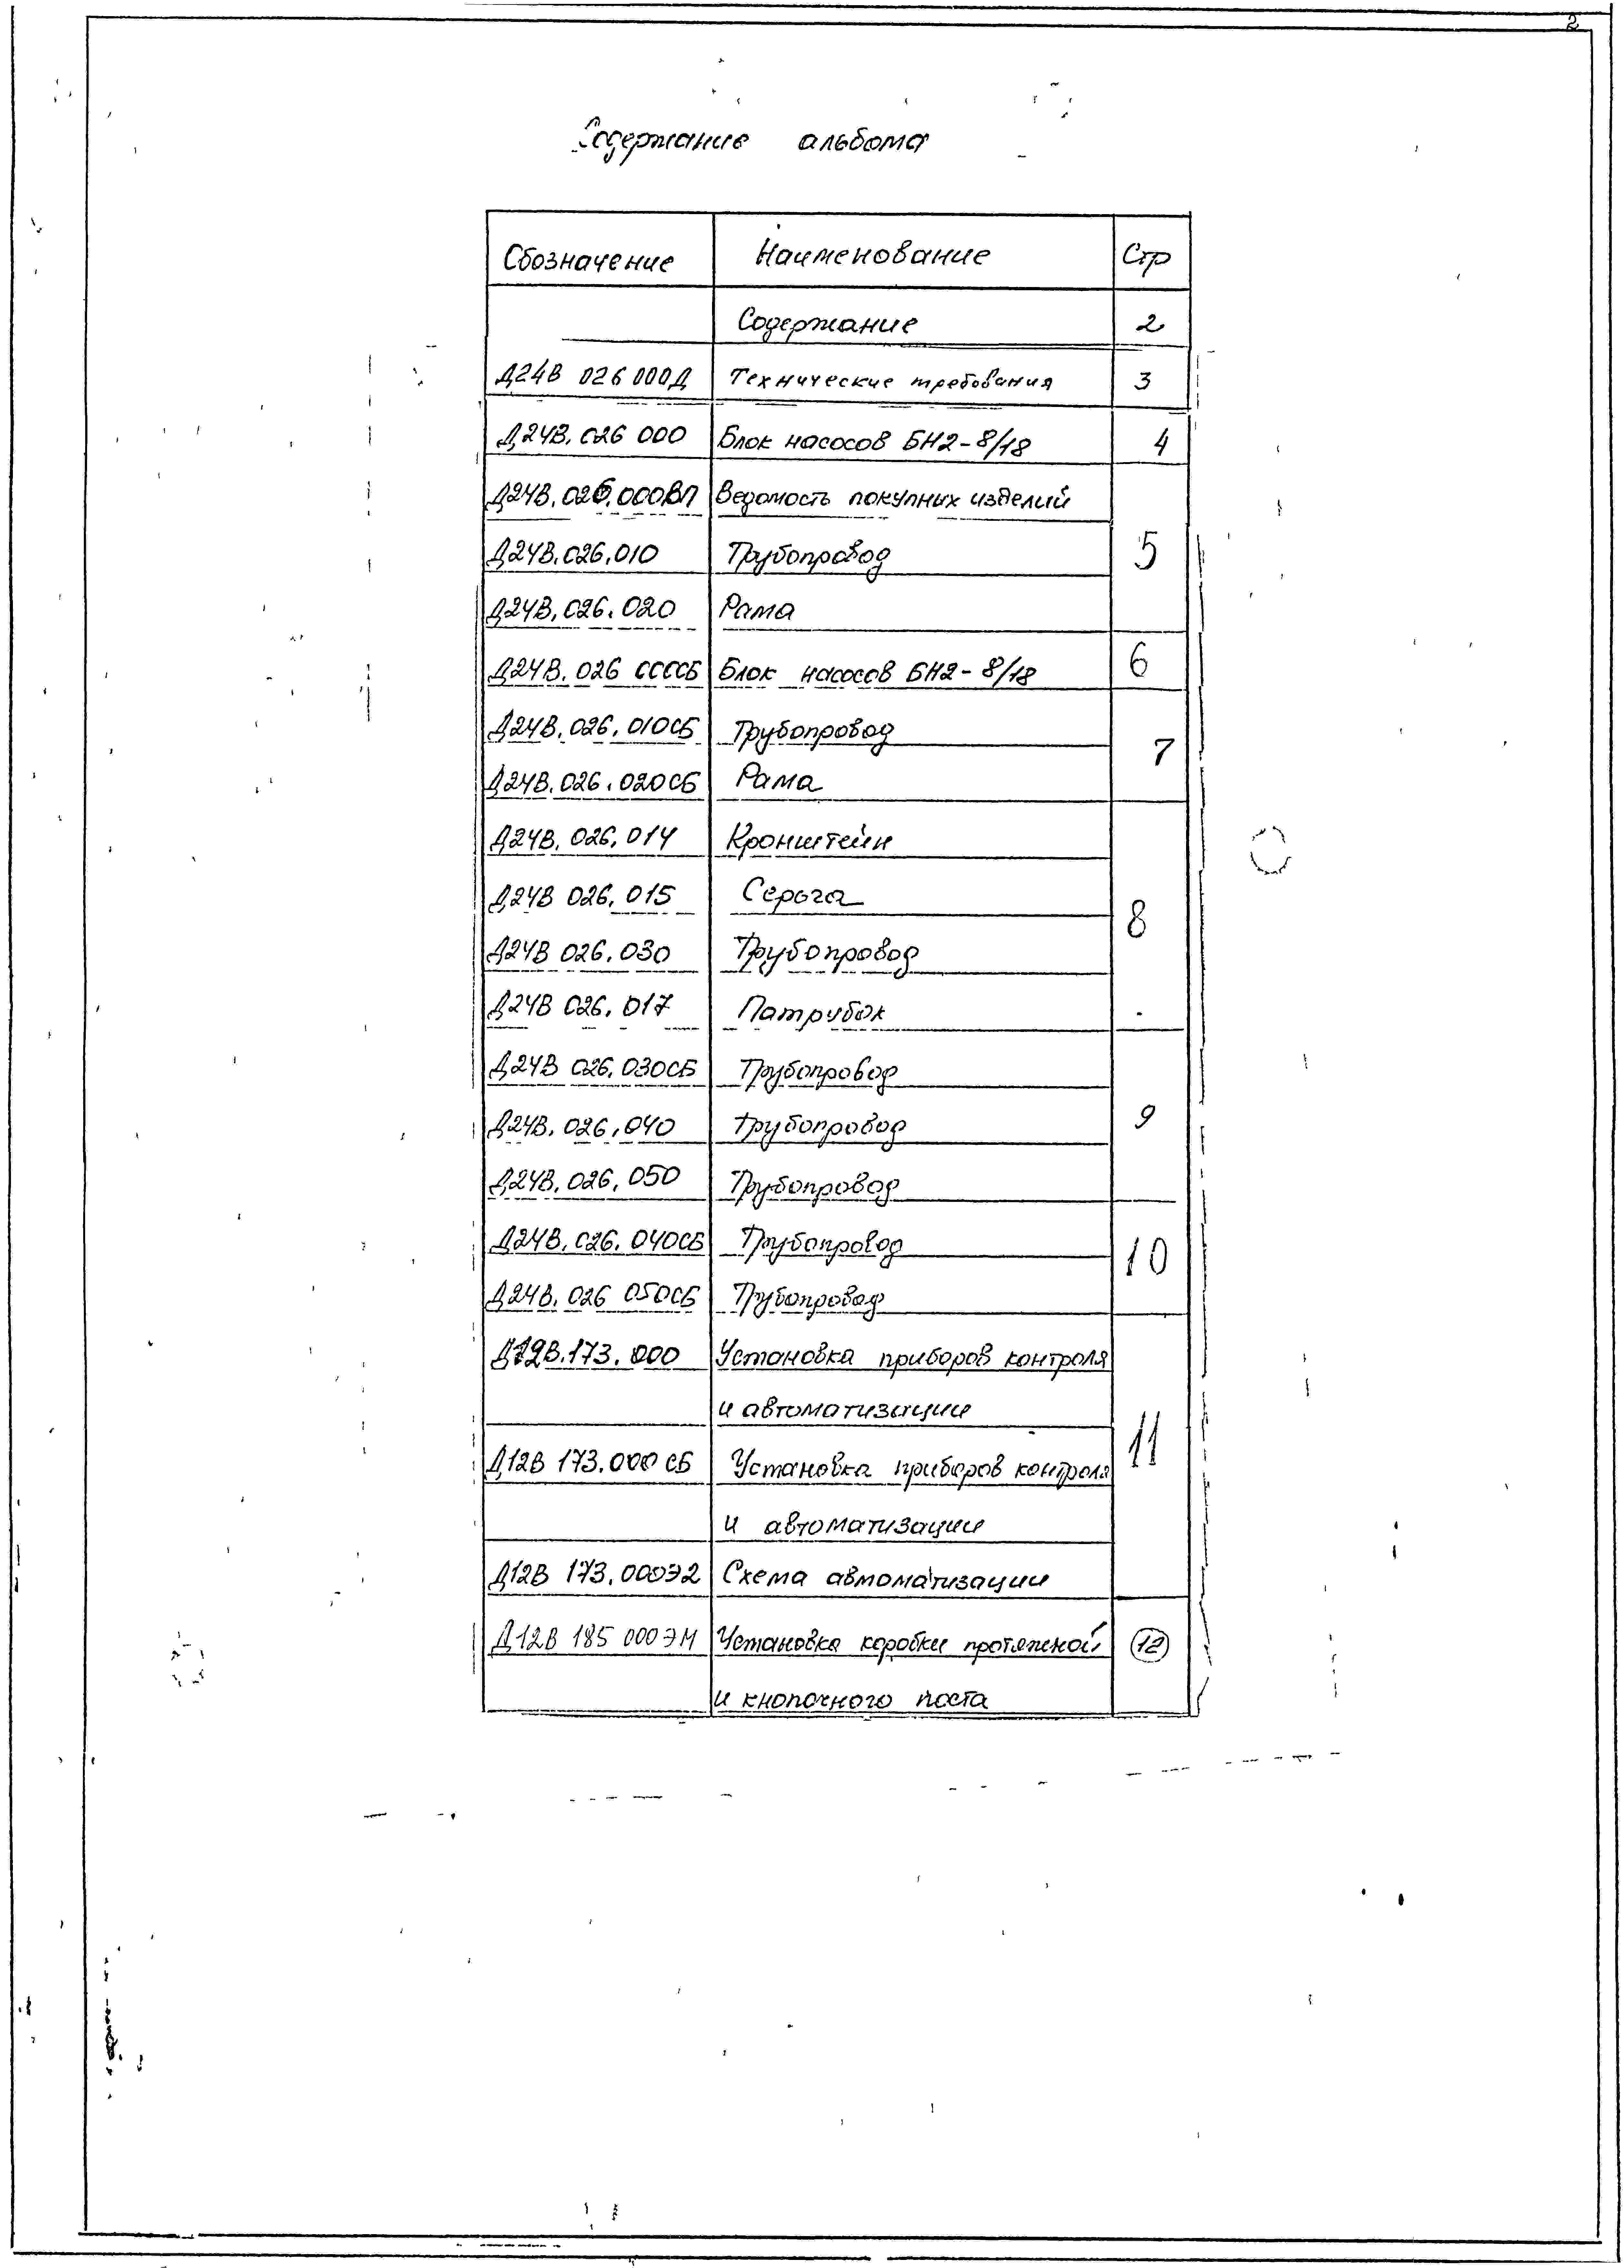 2
Содержание альбома
Обозначение Наименование Стр
Содержание 2
Д24В 026 000Д Технические требования 3
Д24В.026 000 Блок насосов БН2-8/18 4
Д24В.026.000ВП Ведомость покупных изделий
Д24В.026.010 Трубопровод 5
Д24В.026.020 Рама
Д24В.026 000СБ Блок насосов БН2-8/18 6
Д24В.026.010СБ Трубопровод 7
Д24В.026.020СБ Рама
Д24В.026.014 Кронштейн
Д24В 026.015 Серьга 8
Д24В 026.030 Трубопровод
Д24В 026.017 Патрубок
Д24В 026.030СБ Трубопровод
Д24В.026.040 Трубопровод 9
Д24В.026.050 Трубопровод
Д24В.026.040СБ Трубопровод 10
Д24В.026 050СБ Трубопровод
Д12В.173.000 Установка приборов контроля
и автоматизации
Д12В 173.000 СБ Установка приборов контроля 11
и автоматизации
Д12В 173.000Э2 Схема автоматизации
Д12В 185 000ЭМ Установка коробки протяжной 12
и кнопочного поста